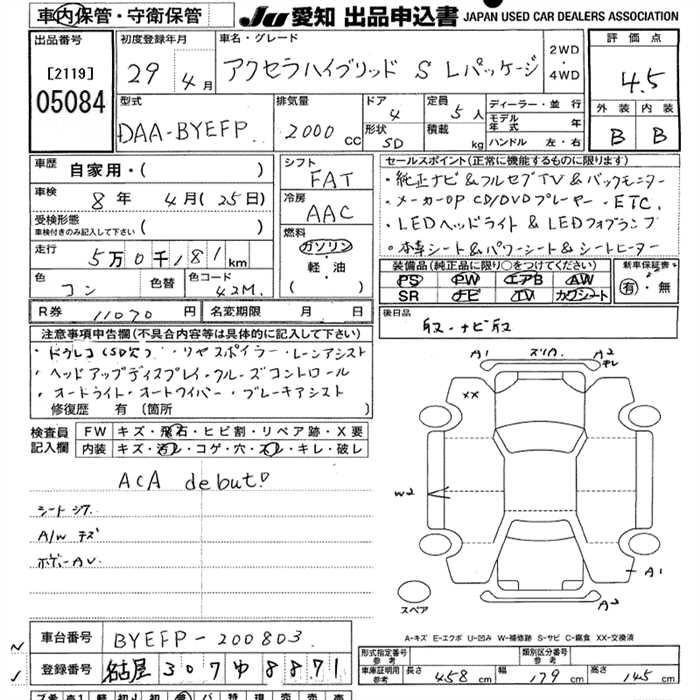 車内保管・守衛保管
JU 愛知 出品申込書 JAPAN USED CAR DEALERS ASSOCIATION
出品番号
[2119]
05084
初度登録年月
29年4月
車名・グレード
アクセラハイブリッド S Lパッケージ
2WD・4WD
評価点
4.5
外装 内装
B B
型式
DAA-BYEFP
排気量
2000cc
ドア
4
形状
SD
定員
5人
積載 kg
ディーラー・並行
モデル年式 年
ハンドル 左・右
車歴
自家用・( )
車検
8年 4月(25日)
受検形態
車検付きのみ記入して下さい ( )
走行
5万0千181km
色
コン
色替
色コード
42M
シフト
FAT
冷房
AAC
燃料
ガソリン
・軽・油
( )
セールスポイント(正常に機能するものに限ります)
・純正ナビ&フルセグTV&バックモニター
・メーカーOP CD/DVDプレーヤー・ETC
・LEDヘッドライト&LEDフォグランプ
・本革シート&パワーシート&シートヒーター
装備品(純正品に限り○をつけてください)
PS PW エアB AW
SR ナビ TV カワシート
新車保証書
有・無
R券 11070円
名変期限 月 日
後日品
取・ナビ取
注意事項申告欄(不具合内容等は具体的に記入して下さい)
・ドラレコ(SD欠)・リヤスポイラー・レーンアシスト
・ヘッドアップディスプレイ・クルーズコントロール
・オートライト・オートワイパー・ブレーキアシスト
修復歴 有(箇所
検査員記入欄
FW キズ・飛石・ヒビ割・リペア跡・X要
内装 キズ・汚レ・コゲ・穴・スレ・キレ・破レ
ACA debut!
シートシワ
A/W キズ
ボディーAU
A1 スリA. A2
キレ
XX
W2
A1
A2
スペア
A-キズ E-エクボ U-凹み W-補修跡 S-サビ C-腐食 XX-交換済
車台番号
BYEFP-200803
登録番号
名古屋 307 ゆ 8871
形式指定番号
参考
類別区分番号
参考
車庫証明用
参考
長さ 458cm 幅 179cm 高さ 145cm